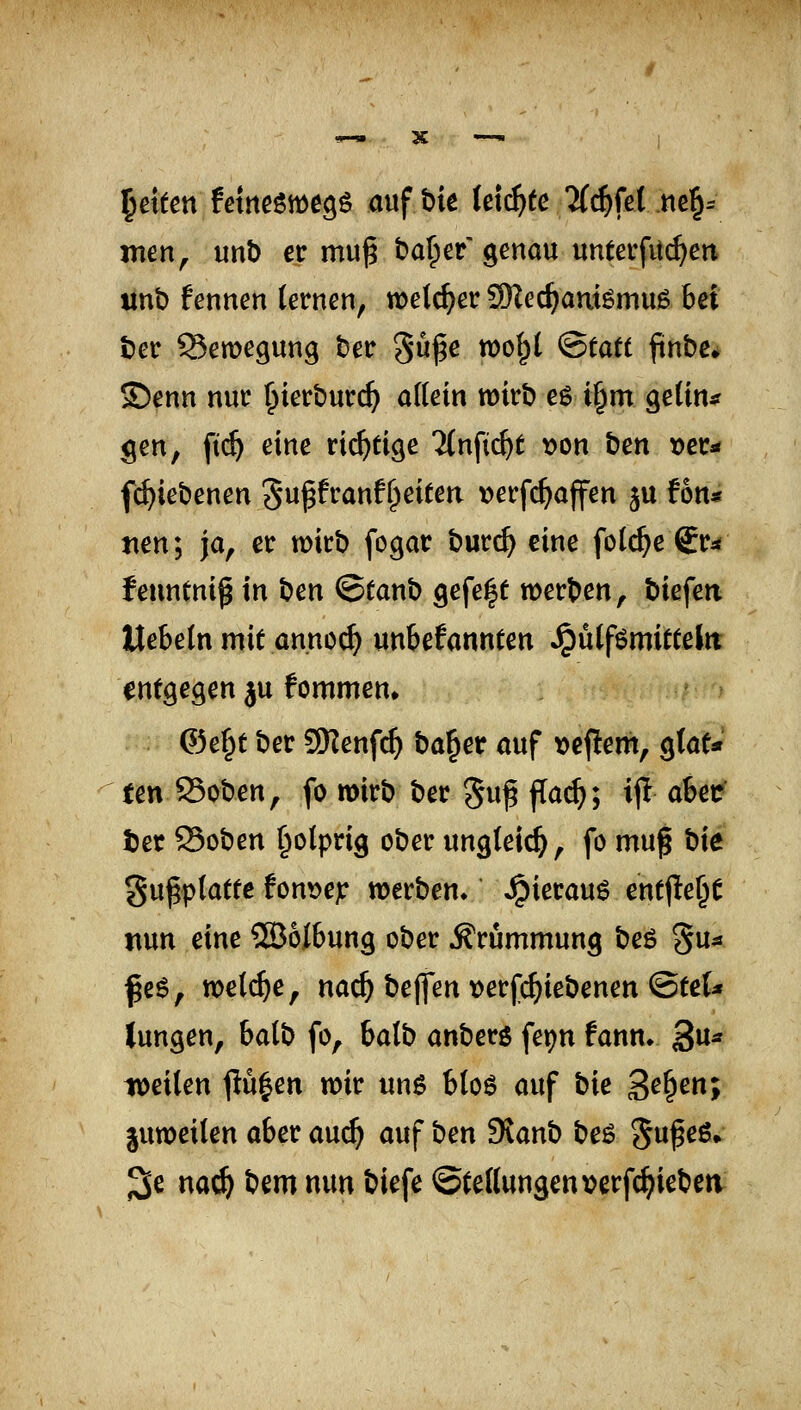 — X —
heiten keineswegs auf die leichte Achsel neh-
men, und er muß daher genau untersuchen
und kennen lernen, welcher Mechanismus bei
der Bewegung der Füße wohl Statt finde.
Denn nur hierdurch allein wird es ihm gelin-
gen, sich eine richtige Ansicht von den ver-
schiedenen Fußkrankheiten verschaffen zu kön-
nen; ja, er wird sogar durch eine solche Er-
kenntniß in den Stand gesetzt werden, diesen
Uebeln mit annoch unbekannten Hülfsmitteln
entgegen zu kommen.
Geht der Mensch daher auf vestem, glat-
ten Boden, so wird der Fuß flach; ist aber
der Boden holprig oder ungleich, so muß die
Fußplatte konvex werden. Hieraus entsteht
nun eine Wölbung oder Krümmung des Fu-
ßes, welche, nach dessen verschiedenen Stel-
lungen, bald so, bald anders seyn kann. Zu-
weilen stützen wir uns blos auf die Zehen;
zuweilen aber auch auf den Rand des Fußes.
Je nach dem nun diese Stellungen verschieden